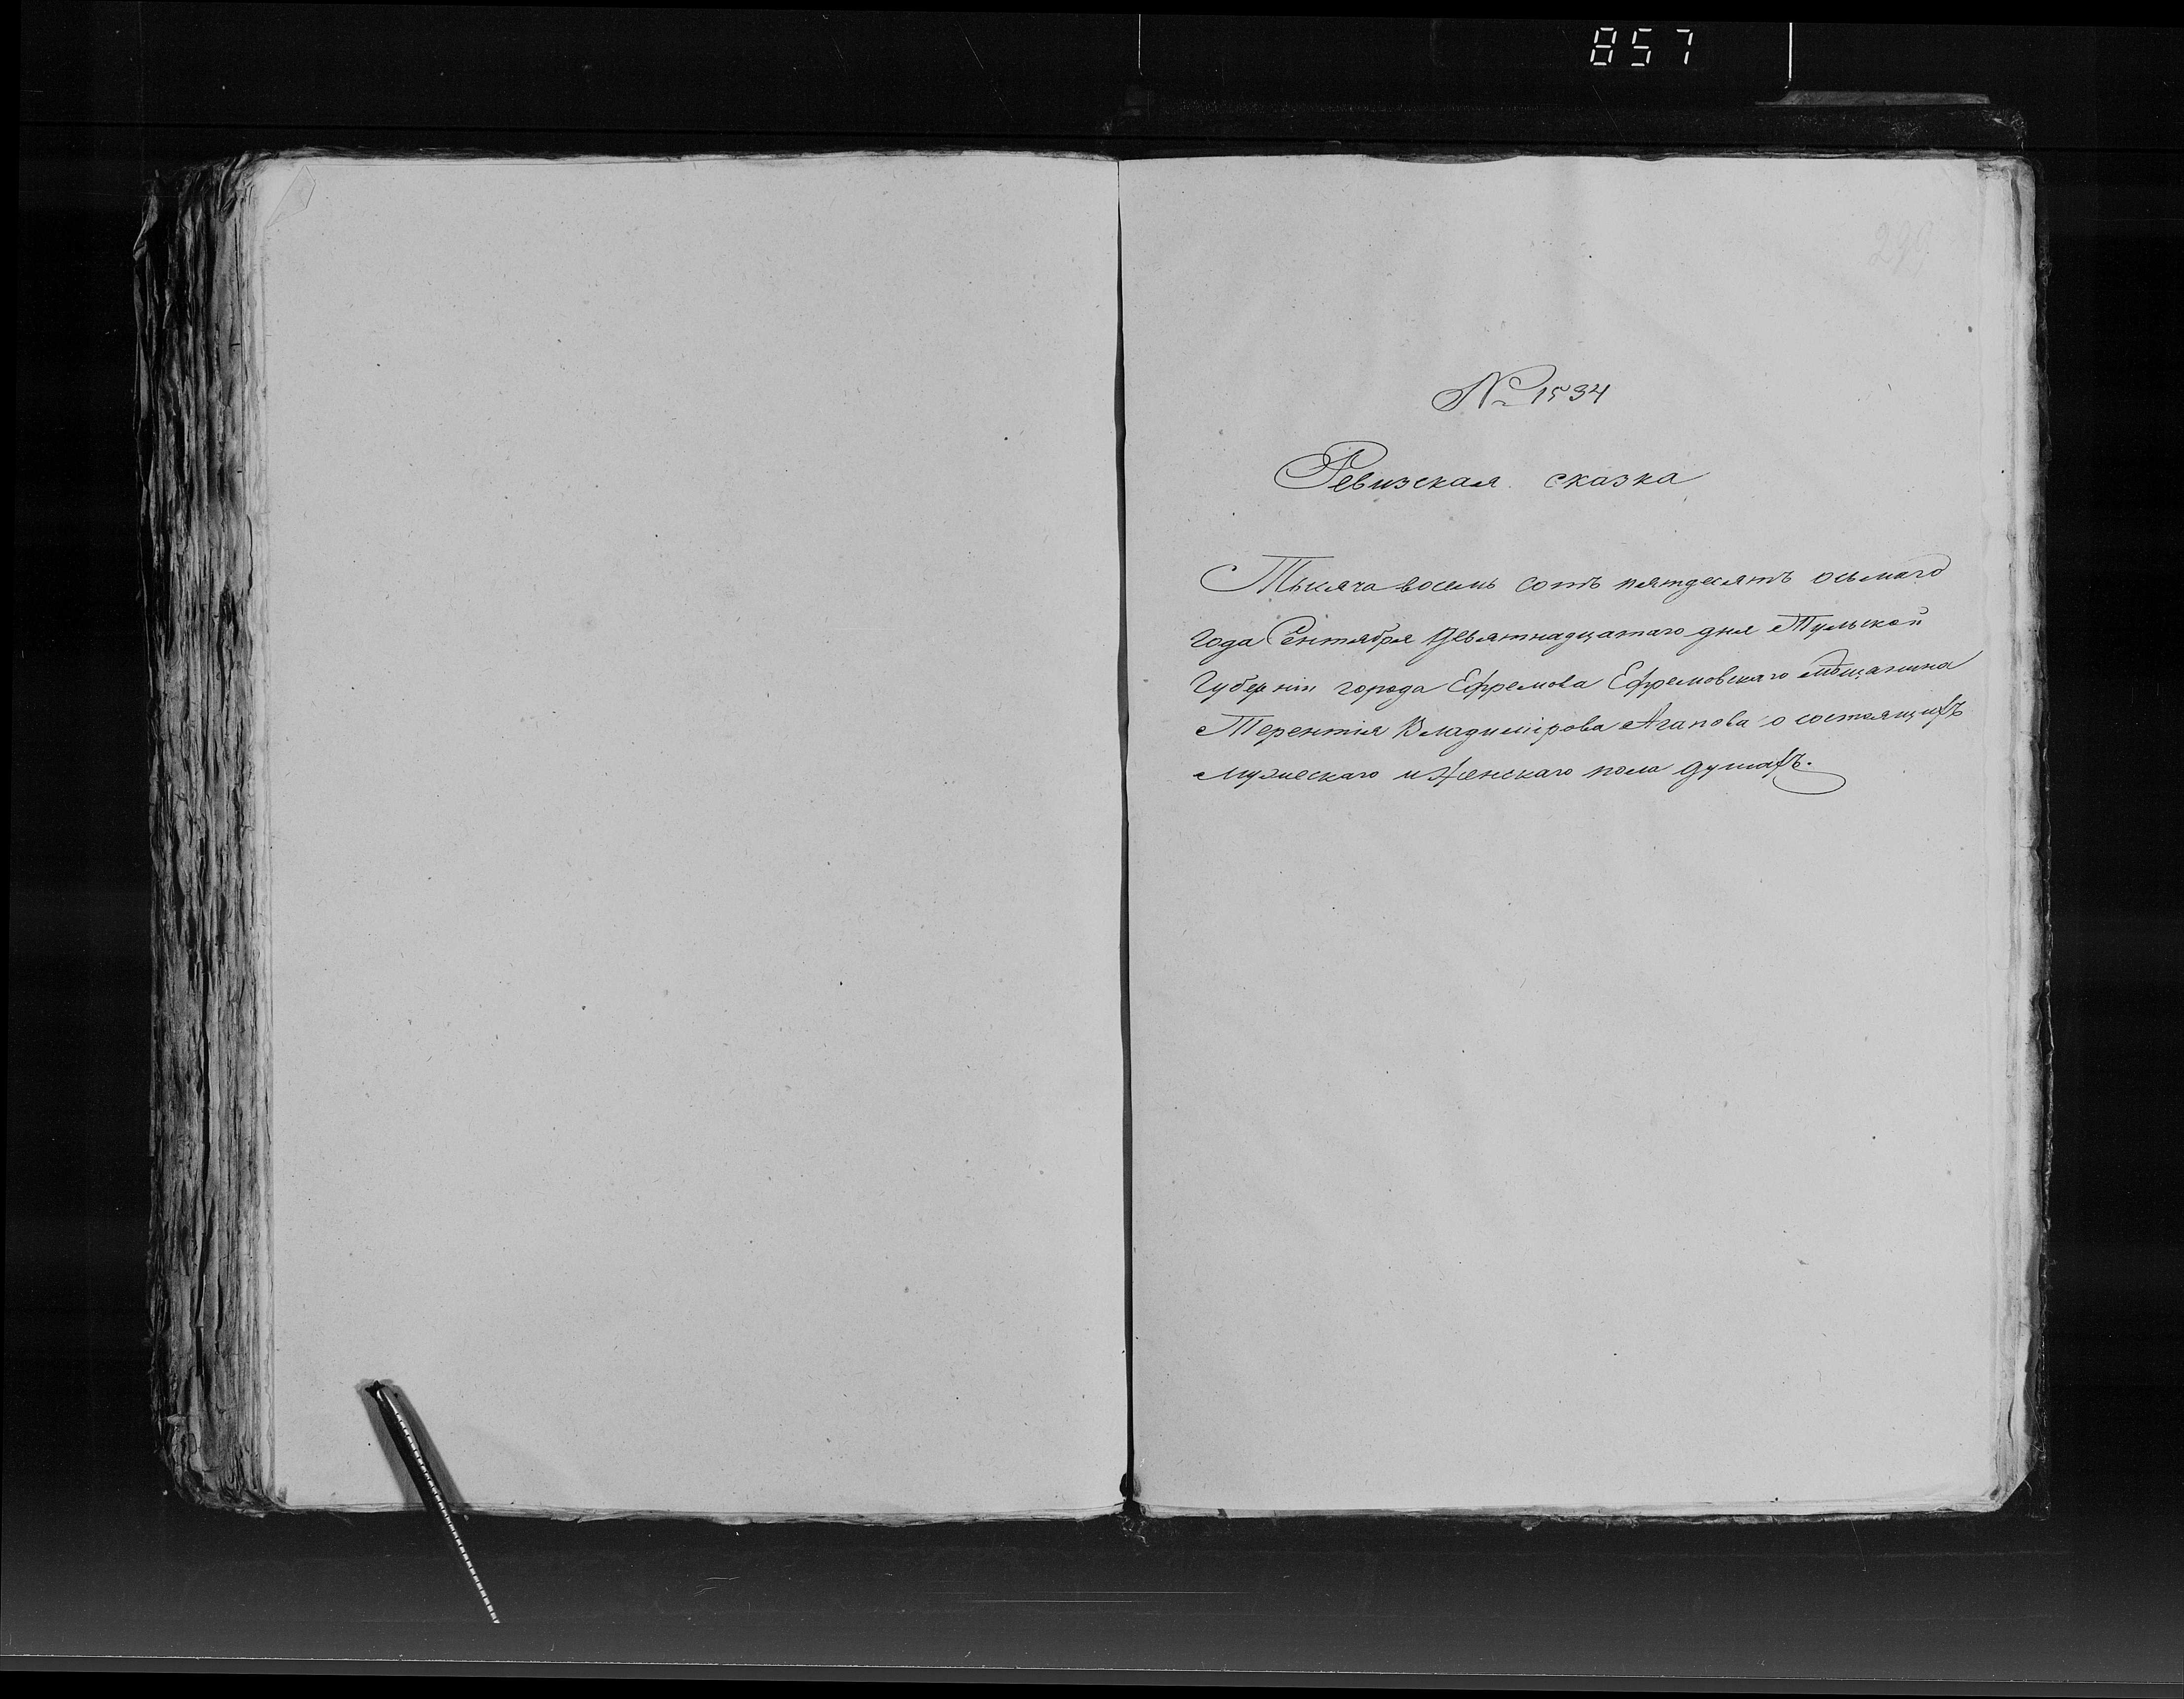 857
№ 1534
Ревизская сказка
Тысяча восемь сотъ пятдесятъ осьмаго
года Сентября девятнадцатаго дня Тульской
Губерніи города Ефремова Ефремовскаго мѣщанина
Терентія Владимірова Агапова о состоящихъ
мужескаго и женскаго пола душахъ.